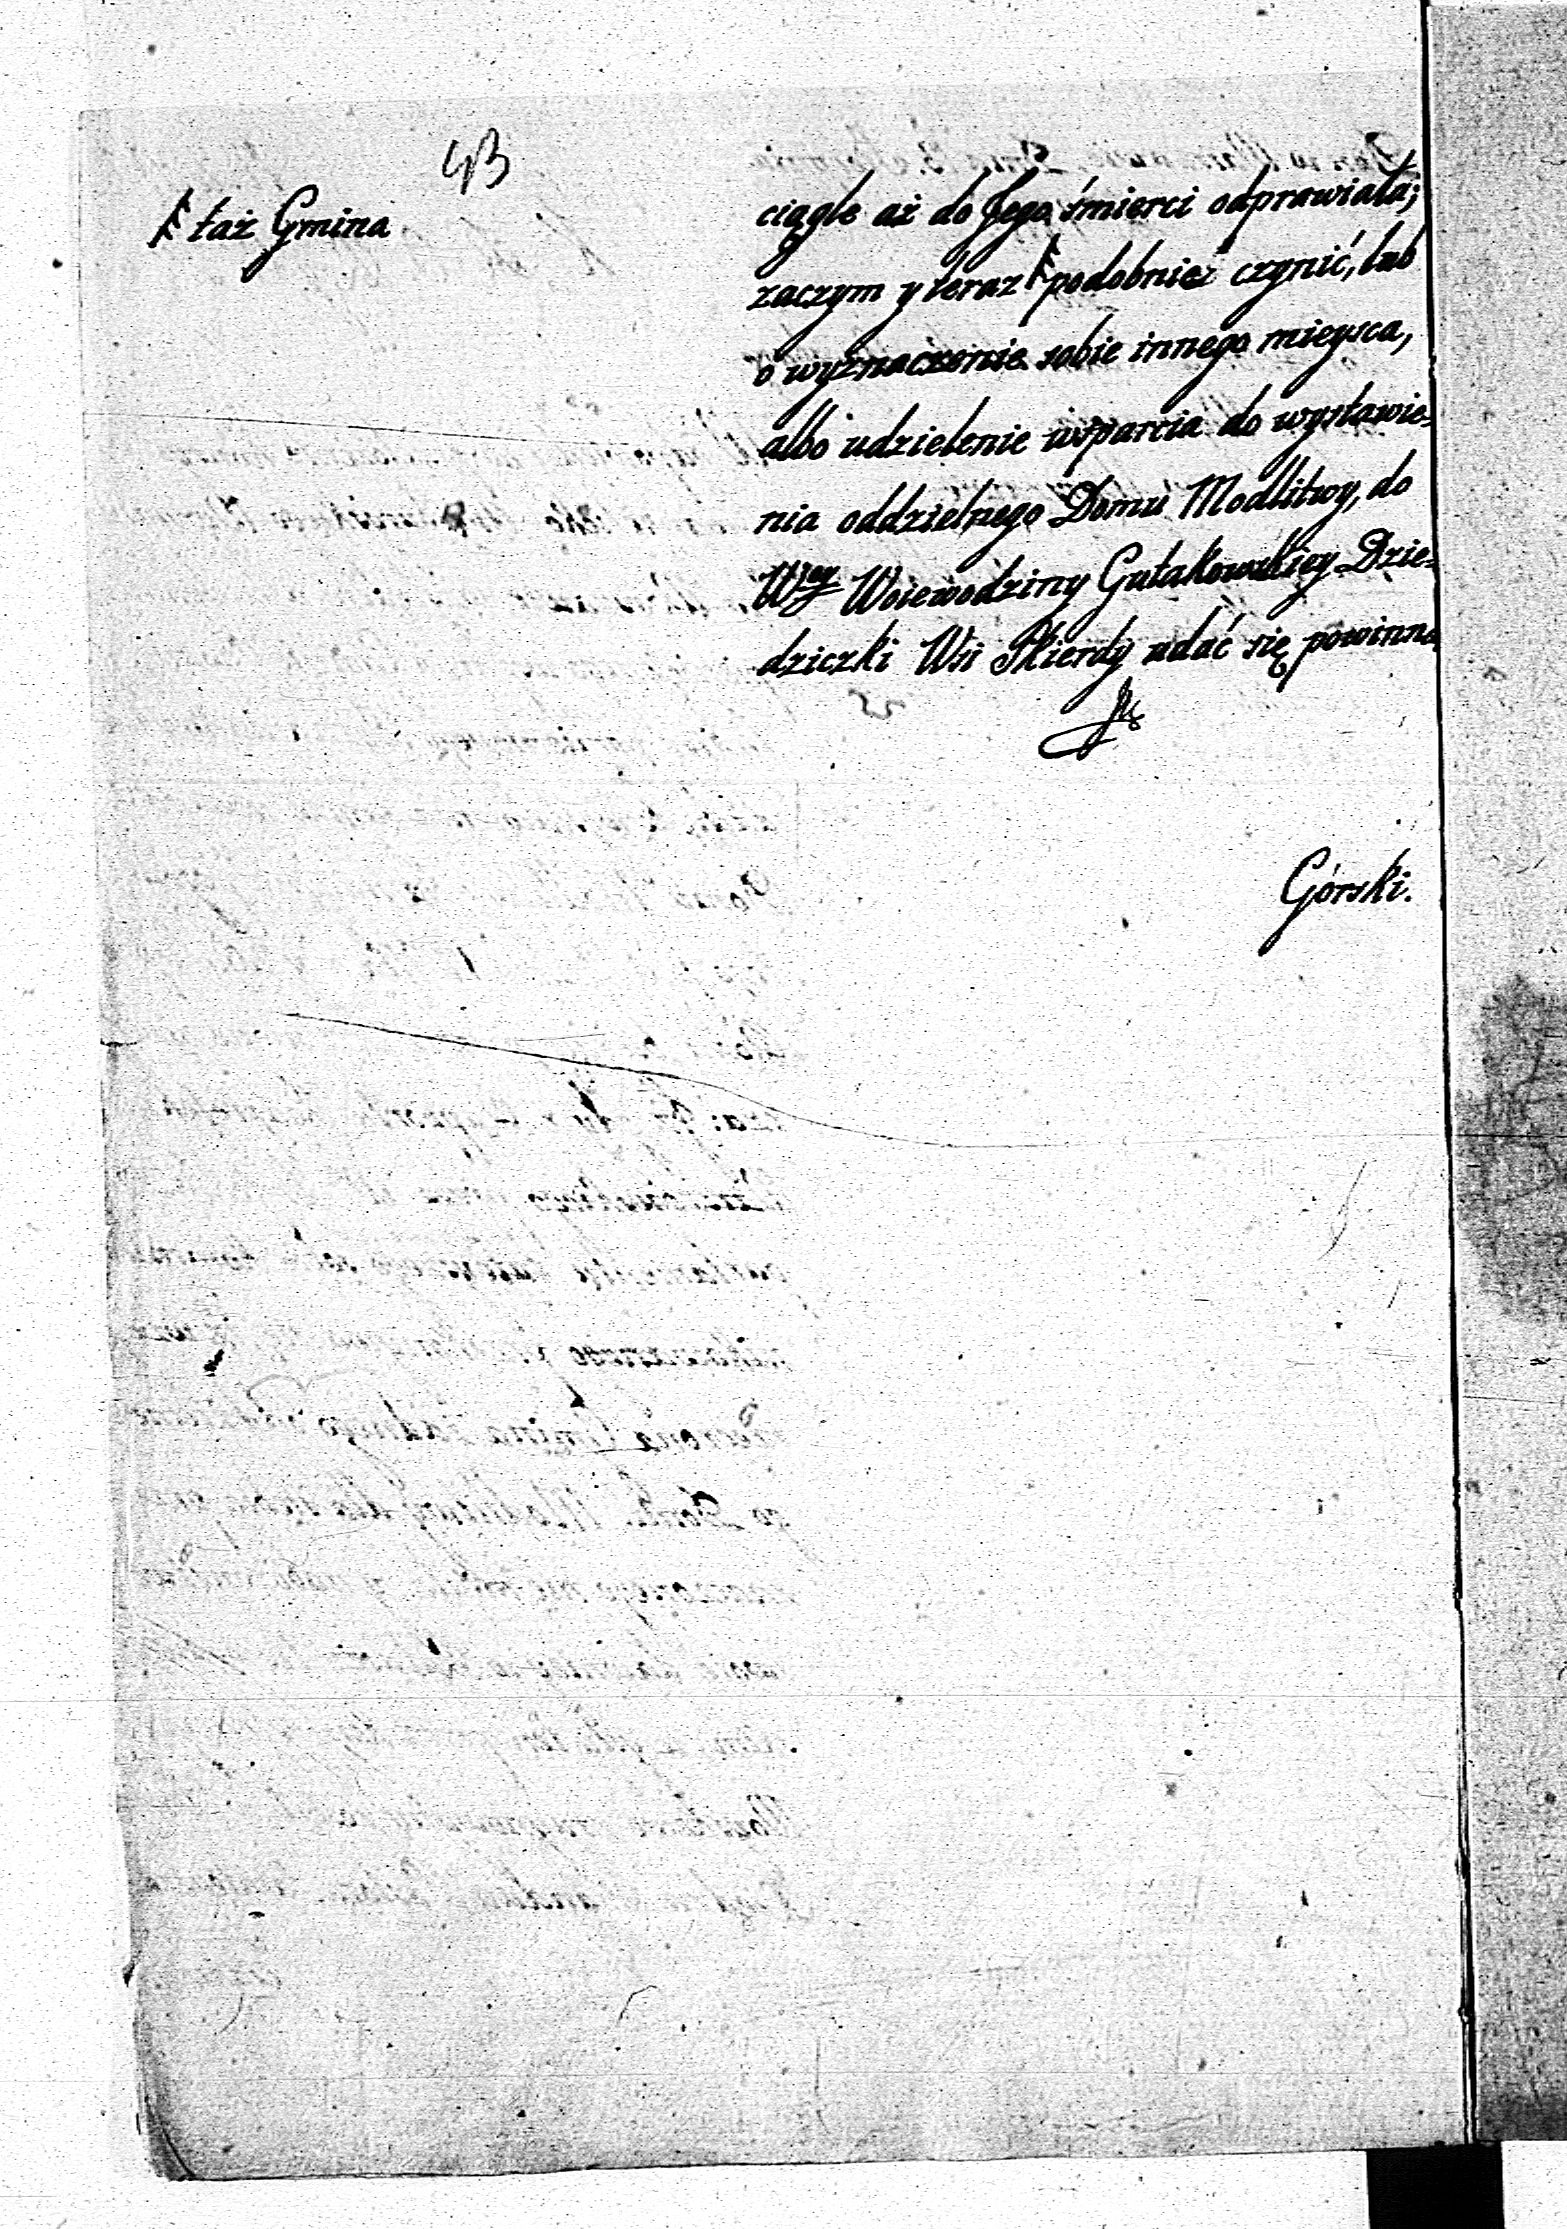 43
taż Gmina
ciągle aż do Jego śmierci odprawiała;
zaczym y teraz podobnież czynić, lub
o wyznaczenie sobie innego mieysca,
albo udzielenie wsparcia do wystawie=
nia oddzielnego Domu Modlitwy, do
Wey Woiewodziny Gutakowskiey Dzie=
dziczki Wsi Skierdy udać się powinna
Górski.